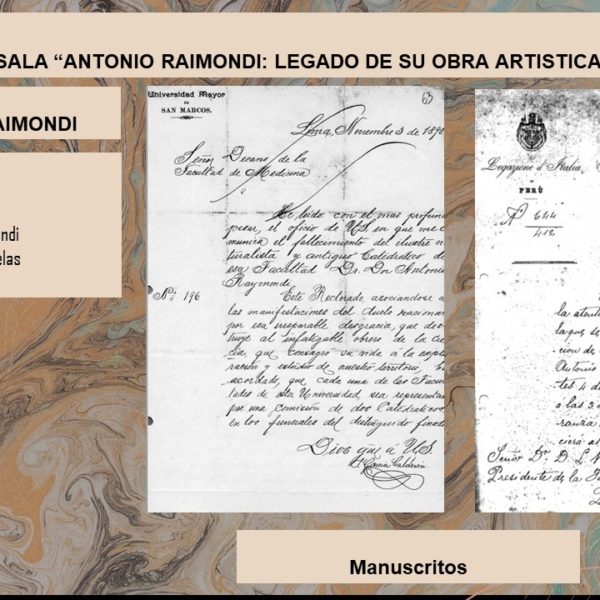 SALA “ANTONIO RAIMONDI: LEGADO DE SU OBRA ARTISTICA
AIMONDI
ndi
elas
Universidad Mayor
DE
SAN MARCOS.
63
Lima, Noviembre 3 de 1890
Señor Decano de la
Facultad de Medicina
He leido con el mas profundo
pesar, el oficio de US. en que me co
munica el fallecimiento del ilustre na
turalista y antiguo Catedrático de
esa Facultad Dr. Don Antonio
Raymondi.
Nº 196
Este Rectorado, asociandose a
las manifestaciones del duelo
por esa irreparable desgracia, que
al infatigable obrero de la cien
cia, que consagró su vida a la explo
racion y estudio de nuestro territorio, ha
acordado, que cada una de las Facul
tades de esta Universidad sea representada
por una comision de dos Catedraticos
en los funerales del distinguido finado
Dios gue á US.
F. Garcia Calderón
Legazione d'Italia
PERÚ
Nº 644
412
la atenta
la que se
cion de
Antonio
tes 4 d
a las 3
Señor Dr. D. L.
Presidente de la
Manuscritos